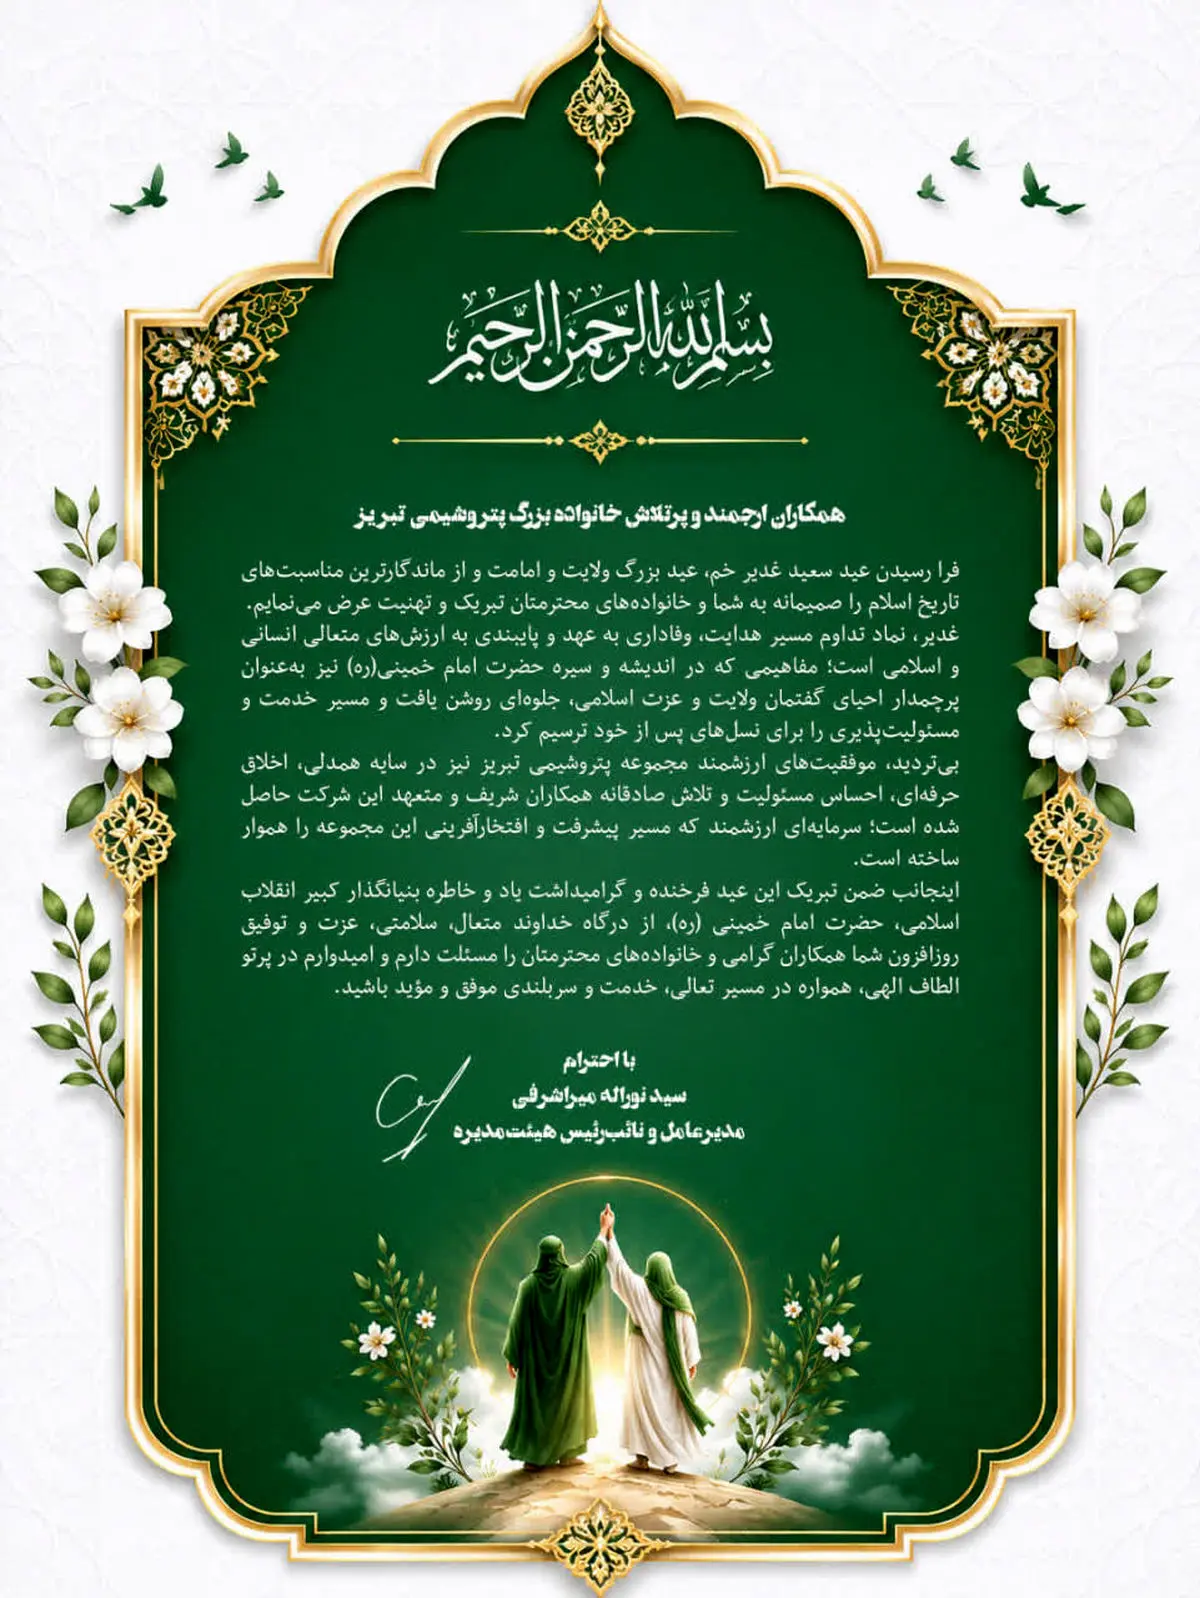 بسم الله الرحمن الرحیم
همکاران ارجمند و پرتلاش خانواده بزرگ پتروشیمی تبریز
فرا رسیدن عید سعید غدیر خم، عید بزرگ ولایت و امامت و از ماندگارترین مناسبت‌های
تاریخ اسلام را صمیمانه به شما و خانواده‌های محترمتان تبریک و تهنیت عرض می‌نمایم.
غدیر، نماد تداوم مسیر هدایت، وفاداری به عهد و پایبندی به ارزش‌های متعالی انسانی
و اسلامی است؛ مفاهیمی که در اندیشه و سیره حضرت امام خمینی(ره) نیز به‌عنوان
پرچمدار احیای گفتمان ولایت و عزت اسلامی، جلوه‌ای روشن یافت و مسیر خدمت و
مسئولیت‌پذیری را برای نسل‌های پس از خود ترسیم کرد.
بی‌تردید، موفقیت‌های ارزشمند مجموعه پتروشیمی تبریز نیز در سایه همدلی، اخلاق
حرفه‌ای، احساس مسئولیت و تلاش صادقانه همکاران شریف و متعهد این شرکت حاصل
شده است؛ سرمایه‌ای ارزشمند که مسیر پیشرفت و افتخارآفرینی این مجموعه را هموار
ساخته است.
اینجانب ضمن تبریک این عید فرخنده و گرامیداشت یاد و خاطره بنیانگذار کبیر انقلاب
اسلامی، حضرت امام خمینی (ره)، از درگاه خداوند متعال، سلامتی، عزت و توفیق
روزافزون شما همکاران گرامی و خانواده‌های محترمتان را مسئلت دارم و امیدوارم در پرتو
الطاف الهی، همواره در مسیر تعالی، خدمت و سربلندی موفق و مؤید باشید.
با احترام
سید نوراله میراشرفی
مدیرعامل و نائب‌رئیس هیئت‌مدیره